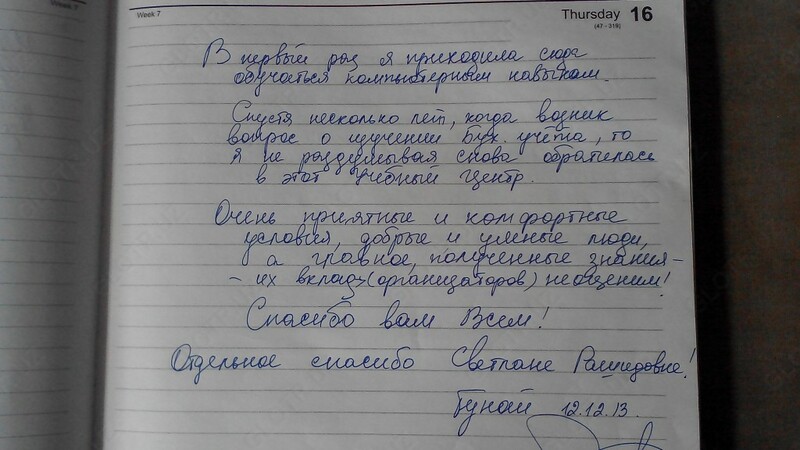 Week 7
Thursday 16
(47 - 319)
В первый раз я приходила сюда
обучаться компьютерным навыкам.
Спустя несколько лет, когда возник
вопрос о изучении Бух. учёта, то
я не раздумывая снова обратилась
в этот Учебный Центр.
Очень приятные и комфортные
условия, добрые и умные люди,
а главное, полученные знания -
- их вклад (организаторов) неоценим!
Спасибо вам Всем!
Отдельное спасибо Светлане Рашидовне!
Гунай 12.12.13.